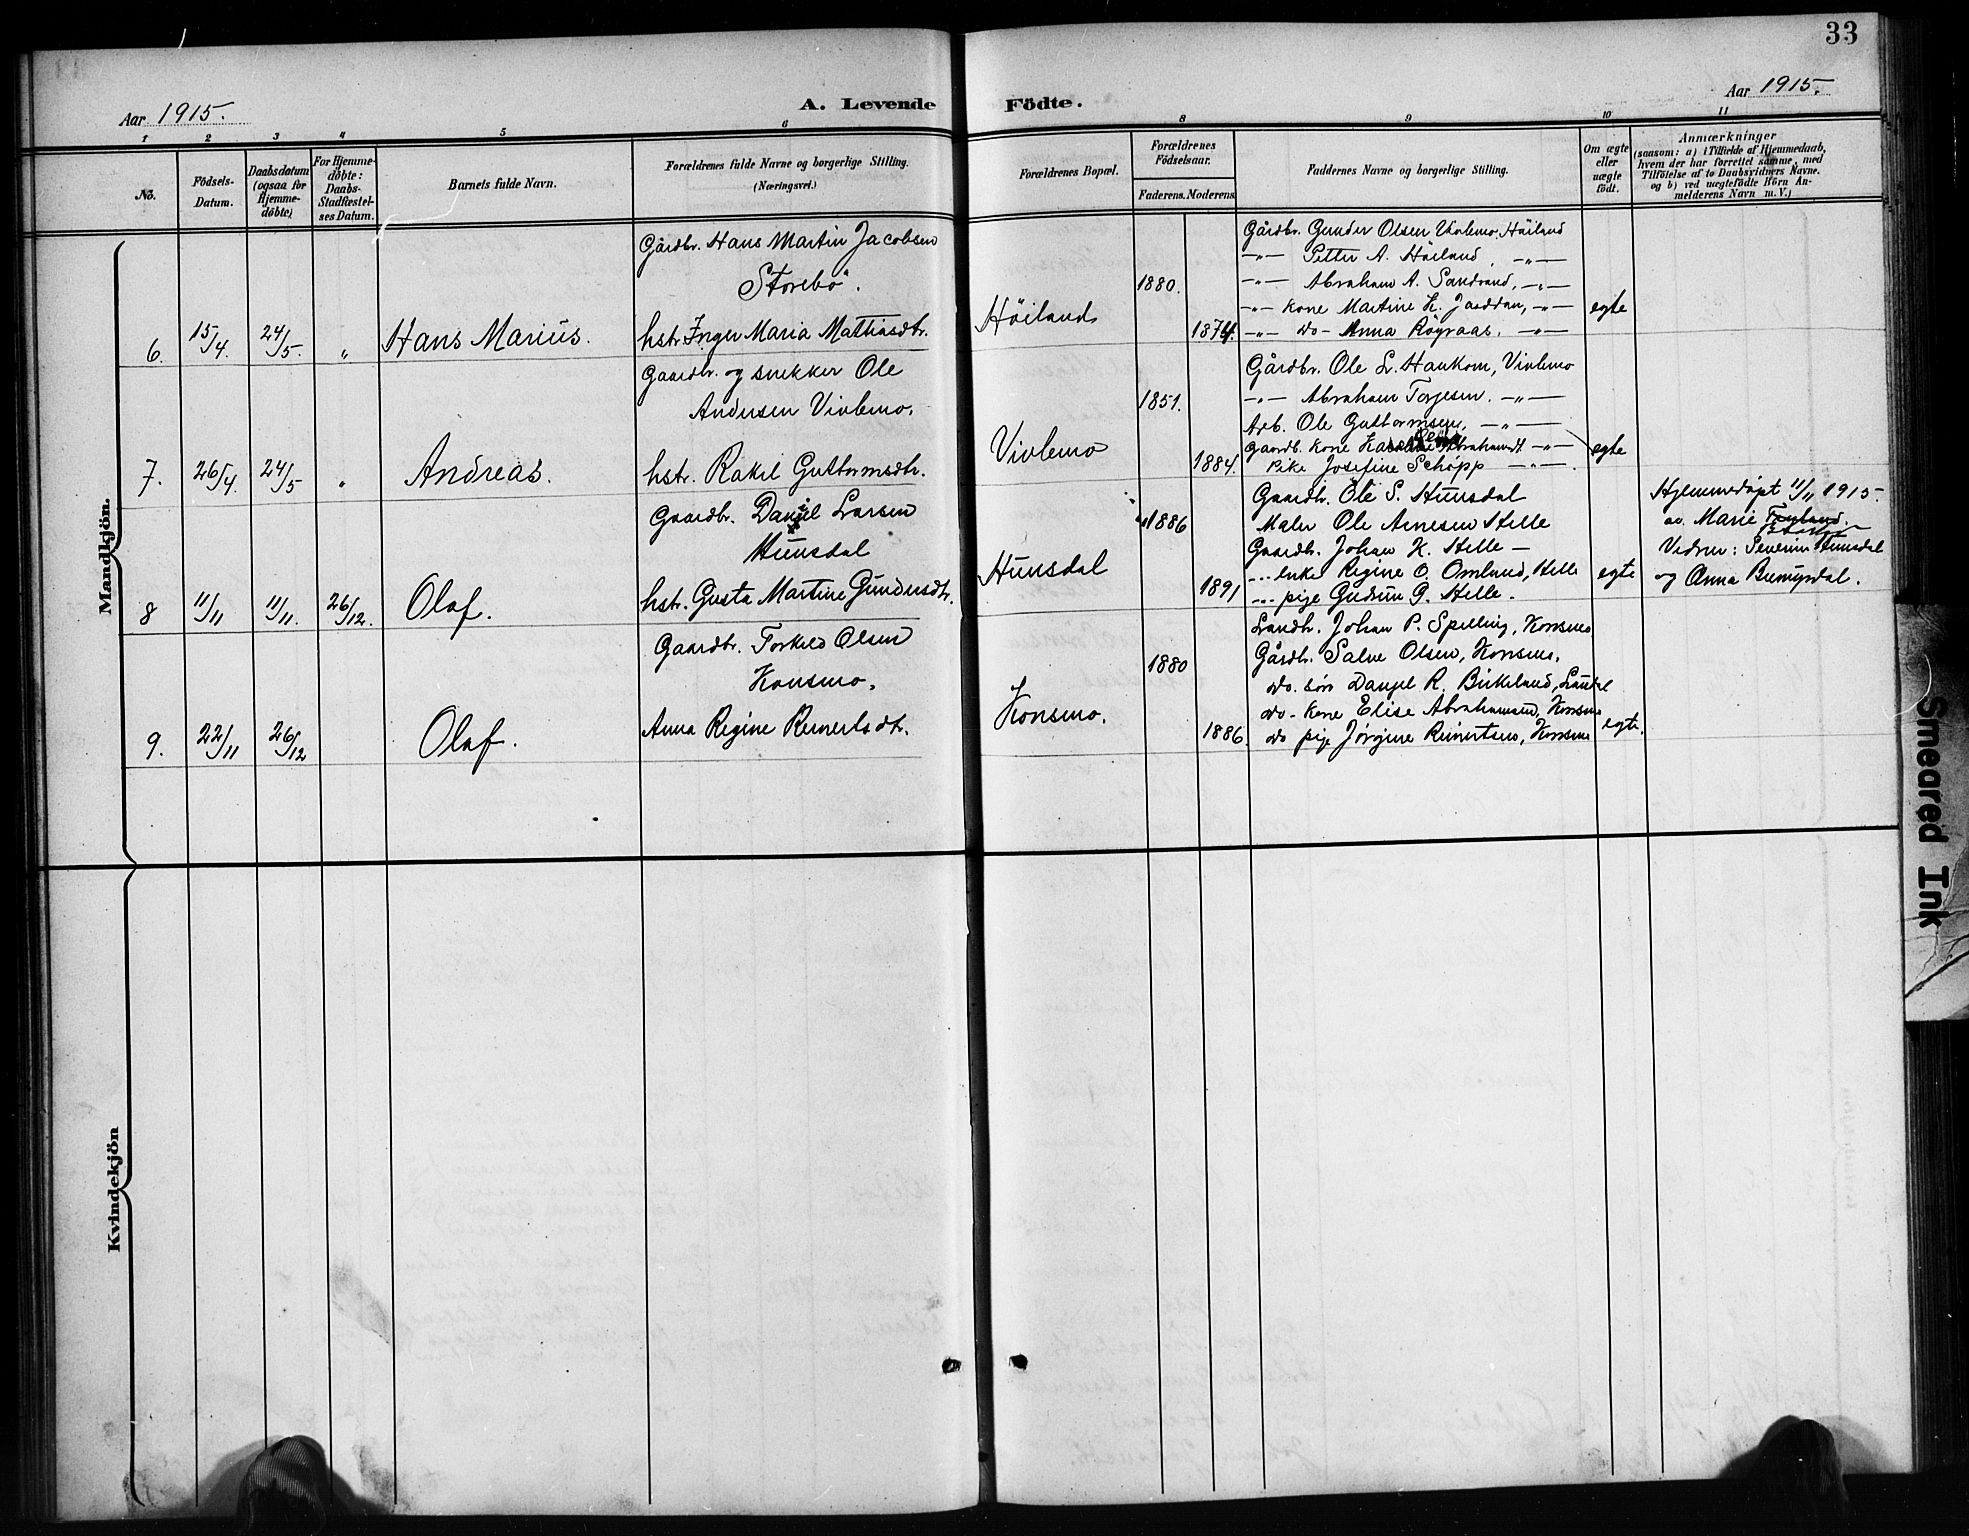 33
Aar 1915.
A. Levende Födte.
Aar 1915.
1 2 3 4 5 6 8 9 10 11
No.
Födsels-Datum.
Daabsdatum (ogsaa for Hjemme-döbte)
For Hjemme-döbte: Daabs-Stadfæstel-ses Datum.
Barnets fulde Navn.
Forældrenes fulde Navne og borgerlige Stilling.
(Næringsvei.)
Forældrenes Bopæl.
Forældrenes Födselsaar.
Faderens. Moderens
Faddernes Navne og borgerlige Stilling.
Om ægte eller uægte födt.
Anmærkninger
(saasom: a) i Tilfælde af Hjemmedaab,
hvem der har forrettet samme, med
Tilföielse af to Daabsvidners Navne.
og b) ved uægtefödte Börn An-
melderens Navn m. V.)
Mandkjön.
Gårdbr. Hans Martin Jacobsen
Storebö.
6. 15/4. 24/5. " Hans Marius. hstr. Inger Maria Mattiasdtr.
Höiland 1880. 1874. egte
Gårdbr. Gunder Olsen Vivlemo. Höiland
-"- Petter A. Höiland. -"-
-"- Abraham A. Sandvand, -"-
-"- kone Martine K. Jorddan, -"-
-"- do- Anna Röyraas. -"-
Gaardbr. og snekker Ole
Andersen Vivlemo.
7. 26/4. 24/5 " Andreas. hstr. Rakel Guttormsdtr.
Vivlemo 1851. 1884. egte
Gårdbr. Ole Lr. Haukom, Vivlemo
-"- Abraham Torjesen. -"-
Arb. Ole Guttormsen, -"-
Gaardb. kone Abrahamsdt -"-
Pike Josefine Schöpp -"-.
Gaardbr. Daniel Larsen
Hunsdal
8 11/11 11/11. 26/12. Olaf. hstr. Gusta Martine Gundersdtr.
Hunsdal 1886 1891 egte
Gaardbr. Ole S. Hunsdal
Maler Ole Arnesen Helle
Gaardbr. Johan K. Helle -
... enke Regine O. Omland, Helle
... pige Gudrun G. Helle.
Hjemmedöpt 11/11 1915.
av Marie
Vidner: Severin Hunsdal
og Anna
Gaardbr. Torkild Olsen
Konsmo.
9. 22/11 26/12 Olaf. Anna Regine Reinertsdtr.
Konsmo. 1880 1886. egte.
Landh. Johan P. Spilling, Konsmo
Gårdbr. Salve Olsen, Konsmo.
do. sön Danjel R. Birkeland, Laudal
do- kone Elise Abrahamsen, Konsmo
do pige Jörgine Reinertsen, Konsmo
Kvindekjön
Smeared Ink